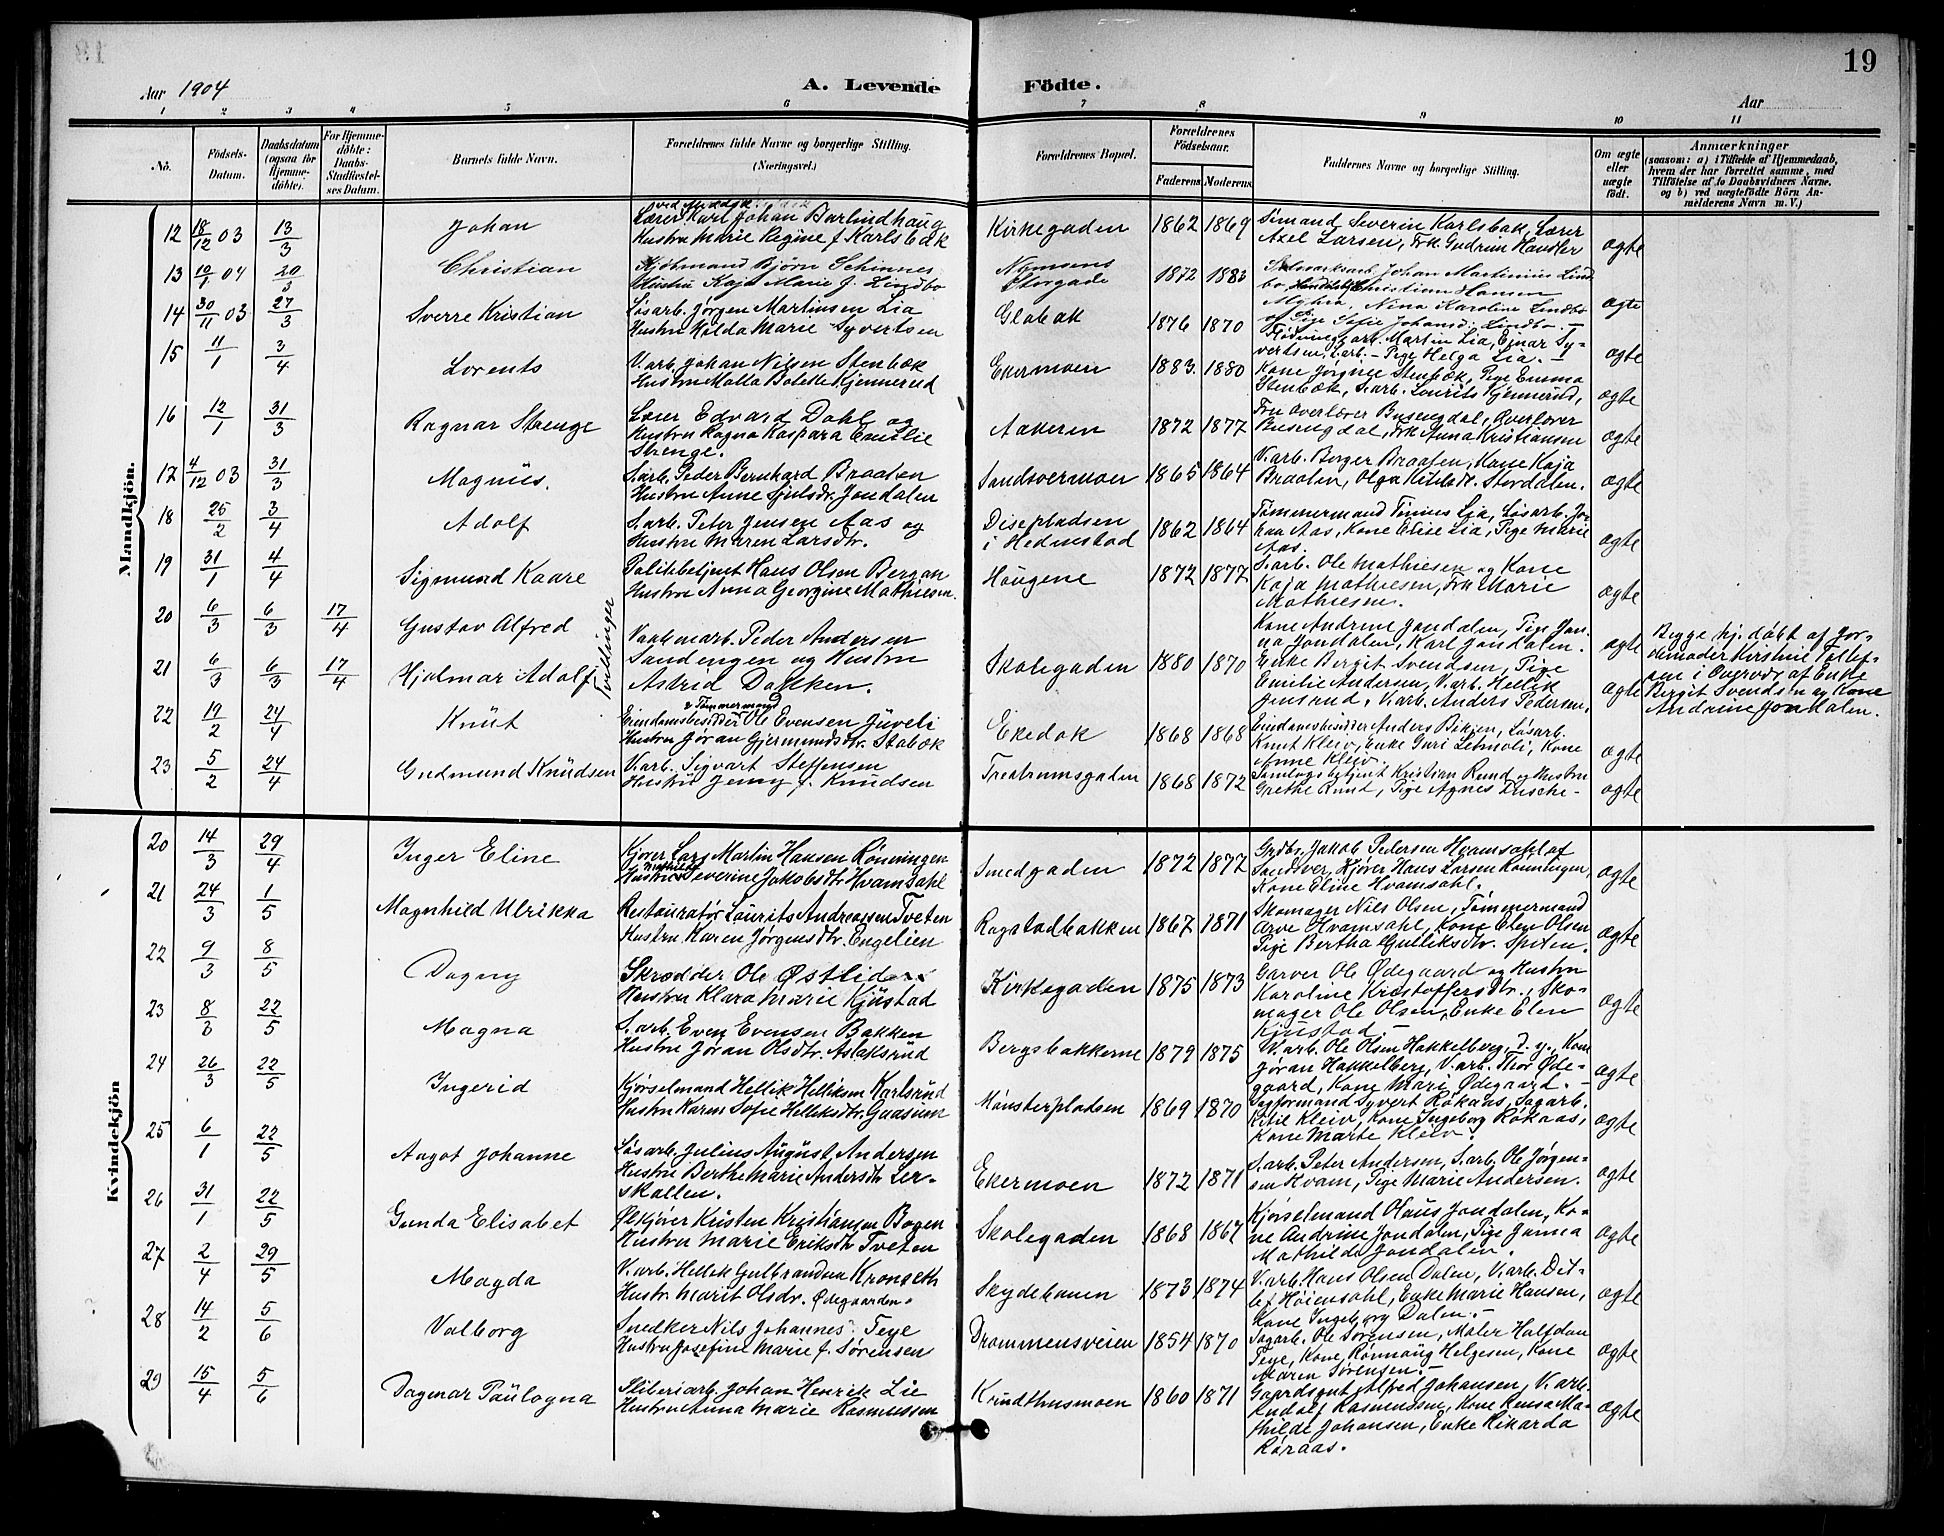 19
Aar 1904
A. Levende Födte.
Aar
1 2 3 4 5 6 7 8 9 10 11
No.
Födsels-Datum.
Daabsdatum (ogsaa for Hjemmedöbte).
For Hjemmedöbte: Daabs-Stadfæstelses Datum.
Barnets fulde Navn.
Forældrenes fulde Navne og borgerlige Stilling. (Næringsvei.)
Forældrenes Bopæl.
Forældrenes Födselsaar.
Faderens Moderens
Faddernes Navne og borgerlige Stilling.
Om ægte eller uægte födt.
Anmærkninger
(saasom: a) i Tilfælde af Hjemmedaab, hvem der har forrettet samme, med Tilföielse af to Daabsvidners Navne, og b) ved uægtefödte Börn Anmelderens Navn m. V.)
Mandkjön.
12 18/12 03 13/3 Johan
Lærer Karl Johan Barlindhaug
Hustru Marie Regine f. Karlsbak
Kirkegaden 1862 1869
Simand Severin Karlsbak, Lærer
Axel Larsen, Frk Gudrun Hansler
ægte
13 10/1 04 20/3 Christian
Kjøbmand Bjørn Schinnes
Hustru Kaja Marie f. Lindbo
Nymoens Storgade 1872 1883
Johan Martinius Lindbo, Christian Hansen
Myhra, Nina Karoline Lindbo
og Pige Sofie Johansd. Lindbo. -
ægte
14 30/11 03 27/3 Sverre Kristian
Løsarb. Jørgen Martinsen Lia
Hustru Hilda Marie Syvertsen
Glabak 1876 1870
Martin Lia, Einar Syvertsen, S.arb. - Pige Helga Lia. -
ægte
15 11/1 3/4 Lorents
V.arb. Johan Nilsen Stenbæk
Hustru Malla Bolette Kjennerud
Ekermoen 1883 1880
Kone Jørgine Stenbæk, Pige Emma
Stenbæk, S.arb. Lourits Kjennerud,
ægte
16 12/1 31/3 Ragnar Stenge
Lærer Edvard Dahl og
Hustru Ragna Kaspara Emilie
Stenge.
Aakeren 1872 1877
Fru Overlærer Busengdal, Overlærer
Busengdal, Frk Anna Kristiansen
ægte
17 4/12 03 31/3 Magnus.
S.arb. Peder Bernhard Braaten
Hustru Anne Sjulsdr. Jondalen
Sandsværmoen 1865 1864
V.arb. Borger Braaten, Kone Kaja
Braaten, Olga Kittilsdr. Stordalen.
ægte
18 25/2 3/4 Adolf
S.arb. Peter Jensen Aas og
Hustru Maren Larsdtr.
Disepladsen i Hedenstad 1862 1864
Tømmermand Tinius Lia, Løsarb. Johan Aas, Kone Elise Lia, Pige Marie
Aas.
ægte
19 31/1 4/4 Sigmund Kaare
Politibetjent Hans Olsen Bergan
Hustru Anna Georgine Mathiesen.
Haugene 1872 1877
S.arb. Ole Mathiesen og Kone
Kaja Mathiesen, Frk Marie
Mathiesen.
ægte
20 6/3 6/3 17/4 Gustav Alfred
21 6/3 6/3 17/4 Hjalmar Adolf
Tvillinger
Vaabenarb. Peder Andersen
Sandengen og Hustru
Astrid Dokken.
Skolegaden 1880 1870
Kone Andrine Jondalen, Pige Janna Jondalen, Karl Jondalen.
Enke Bergit Svendsen, Pige
Emilie Andersen, V.arb. Hellik
Jensrud, V.arb. Anders Pedersen.
ægte
ægte
Begge hj. døbt af Jordemoder Kirstine Tollefsen i Overvær af Enke
Bergit Svendsen og Kone
Andrine Jondalen.
22 19/2 24/4 Knut
& Tømmermand
Eiendomsbesidder Ole Evensen Juveli
Hustru Jøran Gjermundsdr. Stabæk
Ekedok 1868 1868
Eiendomsbesidder Anders Bikjen, Løsarb.
Knut Kleiv, Enke Guri Letmoli, Kone
Anne Kleiv.
ægte
23 5/2 24/4 Gudmund Knudsen
V.arb. Sigvart Steffensen
Hustru Jenny f. Knudsen
Treatrumsgaden 1868 1872
Samlagsbetjent Kristian Rund og Hustru
Grethe Rund, Pige Agnes Lusche-
ægte
Kvindekjön
20 14/3 29/4 Inger Eline
Kjører Lars Martin Hansen Rønningen
Hustru Mathilde Severine Jakobsdtr Hvamsahl
Smedgaden 1872 1877
Grdbr. Jakob Pedersen Hvamsahl af
Sandsver, Kjører Hans Larsen Rønningen,
Kone Eline Hvamsahl.
ægte
21 24/3 1/5 Magnhild Ulrikka
Restauratør Laurits Andreassen Tveten
Hustru Karen Jørgensdtr. Engelien
Rogstadbakken 1867 1871
Skomager Nils Olsen, Tømmermand
Arve Hvamsahl, Kone Elen Olsen
Pige Bertha Gulliksdtr. Spiten
ægte
22 9/3 8/5 Dagny
Skrædder Ole Østlid
Hustru Klara Marie Kjustad
Kirkegaden 1875 1873
Garver Ole Ødegaard og Hustru
Karoline Kristoffersdtr., Skomager Ole Olsen, Enke Elen
Kjustad. -
ægte
23 8/3 22/5 Magna
S.arb. Even Evensen Bakken
Hustru Jøran Olsdtr. Aslaksrud
Bergsbakkerne 1879 1875
V.arb. Ole Olsen Hakkelberg, d.y., Kone
Jøran Hakkelberg, V.arb. Thor Ødegaard, Kone Mari Ødegaard. -
ægte
24 26/3 22/5 Ingerid
Kjørselmand Hellik Helliksen Karlsrud
Hustru Karen Sofie Helliksdtr. Gaasum
Mønsterpladsen 1869 1870
Sagformand Syvert Røkaas, Sagarb.
Kittil Kleiv, Kone Ingeborg Røkaas,
Kone Marte Kleiv.
ægte
25 6/1 22/5 Aagot Johanne
Løsarb. Julius August Andersen
Hustru Berthe Marie Andersdtr Lerskallen.
Ekermoen 1872 1871
S.arb. Peter Andersen, S.arb. Ole Jørgensen Kvam, Pige Marie Andersen.
ægte
26 31/1 22/5 Gunda Elisabet
Ølkjører Kristen Kristiansen Bogen
Hustru Marie Eriksdtr Tveten
Skolegaden 1868 1867
Kjørselmand Olaus Jondalen, Kone Andrine Jondalen, Pige Janna
Mathilde Jondalen.
ægte
27 2/4 29/5 Magda
V.arb. Hellek Gulbrandsen Kronseth
Hustr. Marit Olsdr. Ødegaarden.
Skydebanen 1873 1874
V.arb. Hans Olsen Dalen, V.arb. Detlef Høiensahl, Enke Marie Hansen,
Kone Ingeborg Dalen. -
ægte
28 14/2 5/6 Valborg
Snedker Nils Johannes. Teye
Hustru Josefine Marie f. Sørensen
Drammensveien 1854 1870
Sagarb. Ole Sørensen, Maler Halfdan
Teye, Kone Rønnaug Helgesen, Kone
Maren Sørensen. -
ægte
29 15/4 5/6 Dagmar Paulogna
Sliberiarb. Johan Henrik Lie
Hustru Anna Marie Rasmussen
Krudthusmoen 1860 1871
Gaardsgut Alfred Johansen, V.arb.
Rudolf Rasmussen, Kone Rensa Mathilde Johansen, Enke Rikarda
Røraas.
ægte